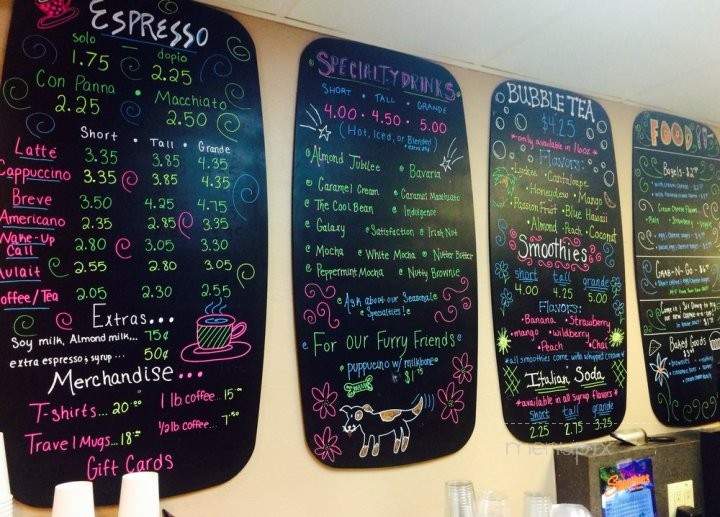 ESPRESSO
solo dopio
1.75 2.25
Con Panna • Macchiato
2.25 2.50
Short • Tall • Grande
Latte 3.35 3.85 4.35
Cappuccino 3.35 3.85 4.35
Breve 3.50 4.25 4.75
Americano 2.35 2.85 3.35
Wake-Up Call 2.80 3.05 3.30
Aulait 2.55 2.80 3.05
Coffee/Tea 2.05 2.30 2.55
Extras...
Soy milk, Almond milk... 75¢
extra espresso & syrup... 50¢
Merchandise...
T-shirts... 20.00 1 lb coffee... 15.00
Travel Mugs... 18.00 1/2 lb coffee... 7.50
Gift Cards
SPECIALTY DRINKS
SHORT • TALL • GRANDE
4.00 • 4.50 • 5.00
(Hot, Iced, or Blended)
• Almond Jubilee • Bavaria
• Caramel Cream • Caramel Macchiato
• The Cool Bean • Indulgence
• Galaxy • Satisfaction • Irish Nut
• Mocha • White Mocha • Nutter Butter
• Peppermint Mocha • Nutty Brownie
• Ask about our Seasonal
Specialties!
• For Our Furry Friends •
• puppuccino w/ milkbone •
$1
BUBBLE TEA
$4.25
*only available in 16oz*
Flavors:
• Lychee • Cantaloupe
• Honeydew • Mango
• Passion Fruit • Blue Hawaii
• Almond • Peach • Coconut
Smoothies
short tall grande
4.00 4.25 5.00
Flavors:
• Banana • Strawberry
• mango • wildberry
• Peach • Chai
*all smoothies come with whipped cream*
Italian Soda
*available in all syrup flavors*
short tall grande
2.25 2.75 3.25
FOOD
Bagels
Cream Cheese Flavors
GRAB-N-GO
Baked Goods
Smoothies
menupix